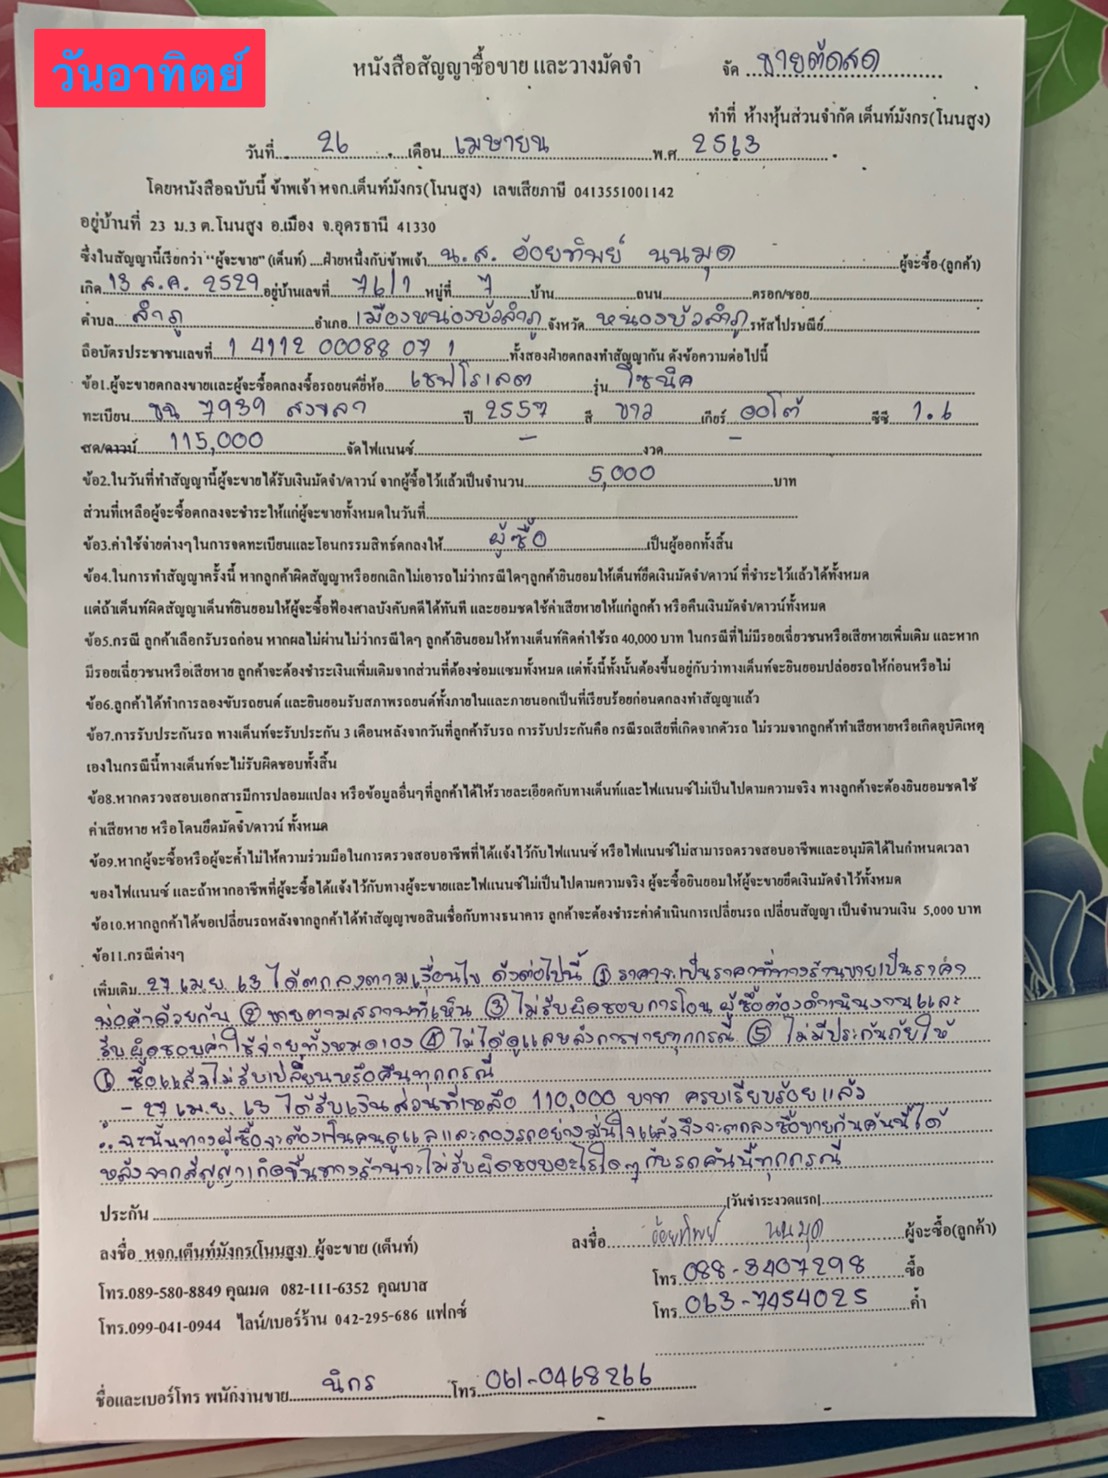 วันอาทิตย์
หนังสือสัญญาซื้อขาย และวางมัดจำ จัด ขายตัดสด
ทำที่ ห้างหุ้นส่วนจำกัด เต็นท์มังกร(โนนสูง)
วันที่ 26 เดือน เมษายน พ.ศ 2563
โดยหนังสือฉบับนี้ ข้าพเจ้า หจก.เต็นท์มังกร(โนนสูง) เลขเสียภาษี 0413551001142
อยู่บ้านที่ 23 ม.3 ต.โนนสูง อ.เมือง จ.อุดรธานี 41330
ซึ่งในสัญญานี้เรียกว่า "ผู้จะขาย" (เต็นท์) ฝ่ายหนึ่งกับข้าพเจ้า น.ส. อ้อยทิพย์ นนมุด ผู้จะซื้อ (ลูกค้า)
เกิด 13 ส.ค. 2529 อยู่บ้านเลขที่ 76/1 หมู่ที่ 7 บ้าน ถนน ตรอก/ซอย
ตำบล ลำภู อำเภอ เมืองหนองบัวลำภู จังหวัด หนองบัวลำภู รหัสไปรษณีย์
ถือบัตรประชาชนเลขที่ 1 4112 00088 07 1 ทั้งสองฝ่ายตกลงทำสัญญากัน ดังข้อความต่อไปนี้
ข้อ1.ผู้จะขายตกลงขายและผู้จะซื้อตกลงซื้อรถยนต์ยี่ห้อ เชฟโรเลต รุ่น โซนิค
ทะเบียน ขฉ 7939 สงขลา ปี 2557 สี ขาว เกียร์ ออโต้ ซีซี 1.6
สด/ดาวน์ 115,000 จัดไฟแนนซ์ - งวด -
ข้อ2.ในวันที่ทำสัญญานี้ผู้จะขายได้รับเงินมัดจำ/ดาวน์ จากผู้ซื้อไว้แล้วเป็นจำนวน 5,000 บาท
ส่วนที่เหลือผู้จะซื้อตกลงจะชำระให้แก่ผู้จะขายทั้งหมดในวันที่
ข้อ3.ค่าใช้จ่ายต่างๆในการจดทะเบียนและโอนกรรมสิทธ์ตกลงให้ ผู้ซื้อ เป็นผู้ออกทั้งสิ้น
ข้อ4.ในการทำสัญญาครั้งนี้ หากลูกค้าผิดสัญญาหรือยกเลิกไม่เอารถไม่ว่ากรณีใดๆลูกค้ายินยอมให้เต็นท์ยึดเงินมัดจำ/ดาวน์ ที่ชำระไว้แล้วได้ทั้งหมด
แต่ถ้าเต็นท์ผิดสัญญาเต็นท์ยินยอมให้ผู้จะซื้อฟ้องศาลบังคับคดีได้ทันที และยอมชดใช้ค่าเสียหายให้แก่ลูกค้า หรือคืนเงินมัดจำ/ดาวน์ทั้งหมด
ข้อ5.กรณี ลูกค้าเลือกรับรถก่อน หากผลไม่ผ่านไม่ว่ากรณีใดๆ ลูกค้ายินยอมให้ทางเต็นท์คิดค่าใช้รถ 40,000 บาท ในกรณีที่ไม่มีรอยเฉี่ยวชนหรือเสียหายเพิ่มเติม และหาก
มีรอยเฉี่ยวชนหรือเสียหาย ลูกค้าจะต้องชำระเงินเพิ่มเติมจากส่วนที่ต้องซ่อมแซมทั้งหมด แต่ทั้งนี้ทั้งนั้นต้องขึ้นอยู่กับว่าทางเต็นท์จะยินยอมปล่อยรถให้ก่อนหรือไม่
ข้อ6.ลูกค้าได้ทำการลองขับรถยนต์ และยินยอมรับสภาพรถยนต์ทั้งภายในและภายนอกเป็นที่เรียบร้อยก่อนตกลงทำสัญญาแล้ว
ข้อ7.การรับประกันรถ ทางเต็นท์จะรับประกัน 3 เดือนหลังจากวันที่ลูกค้ารับรถ การรับประกันคือ กรณีรถเสียที่เกิดจากตัวรถ ไม่รวมจากลูกค้าทำเสียหายหรือเกิดอุบัติเหตุ
เองในกรณีนี้ทางเต็นท์จะไม่รับผิดชอบทั้งสิ้น
ข้อ8.หากตรวจสอบเอกสารมีการปลอมแปลง หรือข้อมูลอื่นๆที่ลูกค้าได้ให้รายละเอียดกับทางเต็นท์และไฟแนนซ์ไม่เป็นไปตามความจริง ทางลูกค้าจะต้องยินยอมชดใช้
ค่าเสียหาย หรือโดนยึดมัดจำ/ดาวน์ ทั้งหมด
ข้อ9.หากผู้จะซื้อหรือผู้จะค้ำไม่ให้ความร่วมมือในการตรวจสอบอาชีพที่ได้แจ้งไว้กับไฟแนนซ์ หรือไฟแนนซ์ไม่สามารถตรวจสอบอาชีพและอนุมัติได้ในกำหนดเวลา
ของไฟแนนซ์ และถ้าหากอาชีพที่ผู้จะซื้อได้แจ้งไว้กับทางผู้จะขายและไฟแนนซ์ไม่เป็นไปตามความจริง ผู้จะซื้อยินยอมให้ผู้จะขายยึดเงินมัดจำไว้ทั้งหมด
ข้อ10.หากลูกค้าได้ขอเปลี่ยนรถหลังจากลูกค้าได้ทำสัญญาขอสินเชื่อกับทางธนาคาร ลูกค้าจะต้องชำระค่าดำเนินการเปลี่ยนรถ เปลี่ยนสัญญา เป็นจำนวนเงิน 5,000 บาท
ข้อ11.กรณีต่างๆ
เพิ่มเติม 27 เม.ย. 63 ได้ตกลงตามเงื่อนไข ดังต่อไปนี้ ① ราคาจะเป็นราคาที่ทางร้านขายเป็นราคา
พ่อค้าด้วยกัน ② ขายตามสภาพที่เห็น ③ ไม่รับผิดชอบการโอน ผู้ซื้อต้องดำเนินงานและ
รับผิดชอบค่าใช้จ่ายทั้งหมดเอง ④ ไม่ได้ดูแลหลังการขายทุกกรณี ⑤ ไม่มีประกันภัยให้
⑥ ซื้อแล้วไม่รับเปลี่ยนหรือคืนทุกกรณี
- 27 เม.ย. 63 ได้รับเงินส่วนที่เหลือ 110,000 บาท ครบเรียบร้อยแล้ว
.. ฉะนั้นทางผู้ซื้อจะต้องเป็นคนดูแลและลองรถอย่างมั่นใจแล้วจึงจะตกลงซื้อขายกันคันนี้ได้
หลังจากสัญญาเกิดขึ้นทางร้านจะไม่รับผิดชอบอะไรใดๆ กับรถคันนี้ทุกกรณี
ประกัน (วันชำระงวดแรก)
ลงชื่อ หจก.เต็นท์มังกร(โนนสูง) ผู้จะขาย (เต็นท์) ลงชื่อ อ้อยทิพย์ นนมุด ผู้จะซื้อ(ลูกค้า)
โทร.089-580-8849 คุณมด 082-111-6352 คุณบาส โทร. 088-3407298 ซื้อ
โทร.099-041-0944 ไลน์/เบอร์ร้าน 042-295-686 แฟกซ์ โทร. 063-7454025 ค้ำ
ชื่อและเบอร์โทร พนักงานขาย นิกร โทร 061-0468266